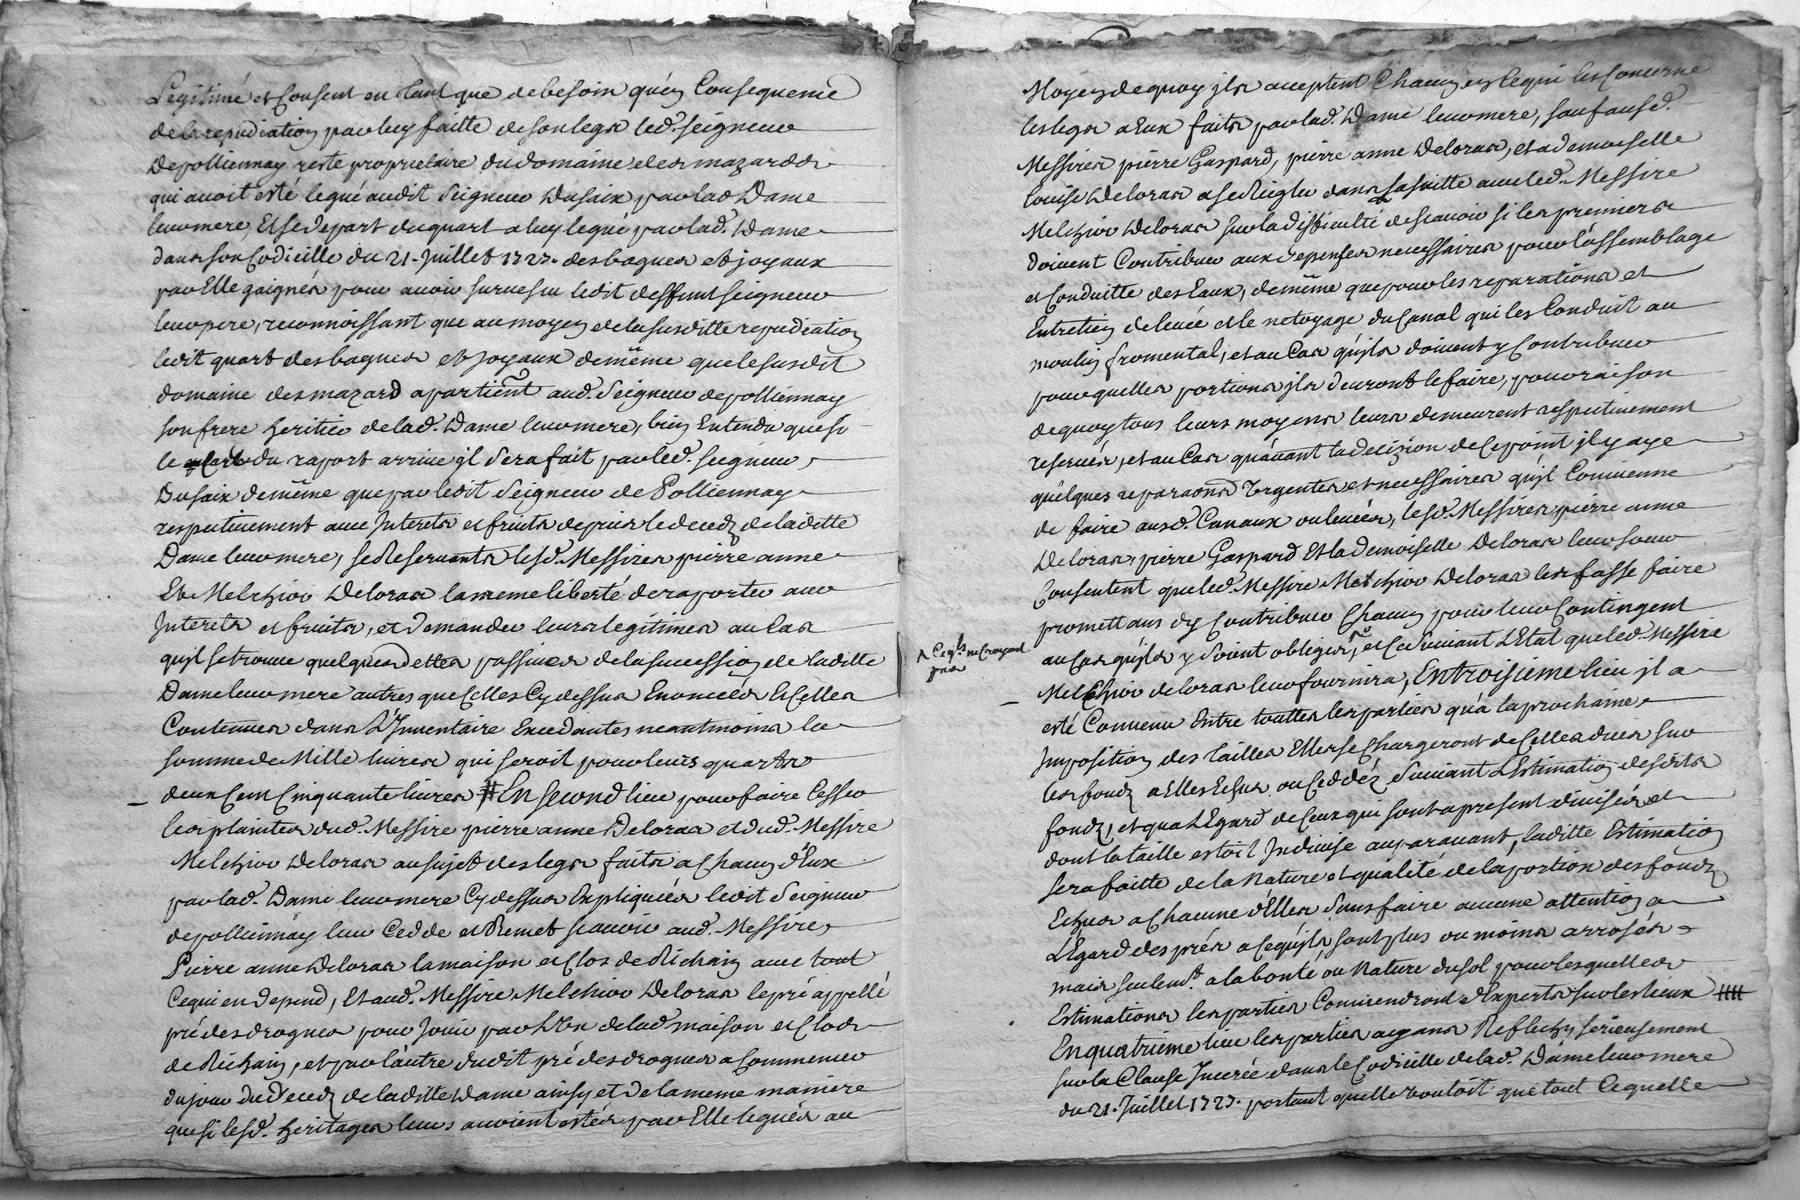 Legitime et Consent en tant que de besoin qu'en Consequence
de la repudiation par luy faitte de son legs led. seigneur
de polliennay reste proprietaire du domaine des mazards
qui avoit esté legué audit Seigneur Dusaix par lad Dame
leur mere, Et se depart du quart a luy legué par lad. Dame
dans son Codicille du 21. Juillet 1727. des bagues et joyaux
par Elle gaignés pour avoir survescu ledit deffunt seigneur
leur pere, reconnoissant que au moyen de la susditte repudiation
ledit quart des bagues et joyaux de même que le susdit
domaine des mazard apartient aud. Seigneur de polliennay
son frere heritier de lad. Dame leur mere, bien Entendu que si
le du raport arrive jl sera fait par led. seigneur
Dusaix de même que par ledit Seigneur de Polliennay
respectivement avec Jnterets et fruits depuis le decedz de laditte
Dame leur mere, se Reservants lesd. Messires pierre anne
Et Melchior Deloras la meme liberté de raporter avec
Jnterets et fruits, et demander leurs legitimes au Cas
qu'jl se trouve quelques dettes passives de la succession de laditte
Dame leur mere autres que Celles Cy dessus Enoncées Et Celles
Contenues dans L'Jnventaire Excedantes neantmoins la
somme de Mille livres qui seroit pour leurs quarts
deux Cent Cinquante livres # En second lieu pour faire Cesser
les plaintes dud. Messire pierre anne Deloras et dud. Messire
Melchior Deloras au sujet des legs faits a Chacun d'Eux
par lad. Dame leur mere Cy dessus Expliqués ledit Seigneur
de polliennay leur Cedde et Remet scavoir aud. Messire
Pierre anne Deloras la maison et Clos de Richain avec tout
Ce qui en depend, Et aud. Messire Melchior Deloras le pré appellé
pré des drogues pour Jouir par L'Un de lad maison et Clos
de Richain, et par l'autre dudit pré des drogues a Commencer
du jour du decedz de laditte Dame ainsy et de la meme maniere
que si lesd. heritages leurs avoient estés par Elle legués au
Moyen de quoy jls acceptent Chacun en Ce qui les Concerne
les legs a Eux faits par lad. Dame leur mere, sauf ausd.
Messires pierre Gaspard, pierre anne Deloras, et a demoiselle
louise Deloras a se Regler dans la suitte avec led. Messire
Melchior Deloras sur la difficulté de scavoir si les premiers
doivent Contribuer aux depenses necessaires pour l'assemblage
et Conduitte des Eaux, de même que pour les reparations et
Entretien de levée et le netoyage du Canal qui les Conduit au
moulin fromental; et au Cas qu'jls doivent y Contribuer
pour quelles portions jls devront le faire, pour raison
de quoy tous leurs moyens leurs demeurent respectivement
reservés, et au Cas qu'avant la decizion de Ce point jl y aye
quelques reparaõns Urgentes et necessaires qu'jl Convienne
de faire ausd. Canaux ou levées, lesd. Messires pierre anne
Deloras, pierre Gaspard Et la demoiselle Deloras leur soeur
Consentent que led. Messire Melchior Deloras les fasse faire
promettans d'y Contribuer Chacun pour leur Contingent
au Cas qu'jls y soient obligés, ^ et Ce suivant L'Etat que led. Messire
^ Ce qu'jls ne Croyent
pas
Melchior deloras leur fournira, En troisieme lieu jl a
esté Convenu Entre touttes les parties qu'a la prochaine
Jmposition des tailles Elles se Chargeront de Celles dues sur
les fondz a Elles Echus, ou Ceddéz suivant L'Estimation desdits
fondz, et qua L'Egard de Ceux qui sont a present divisés et
dont la taille estoit Jndivise auparavant, laditte Estimation
sera faitte de la Nature et qualité de la portion des fondz
Echus a Chacune d'Elles sans faire aucune attention a
L'Egard des prés a Ce qu'jls sont plus ou moins arrosés
mais seulem.t a la bonté, ou Nature du sol pour lesquelles
Estimations les parties Conviendront d'Experts sur les lieux
En quatrieme lieu les parties ayans Reflechy serieusement
sur la Clause Jnserée dans le Codicille de lad. Dame leur mere
du 21. Juillet 1727. portant qu'elle vouloit que tout Ce qu'elle